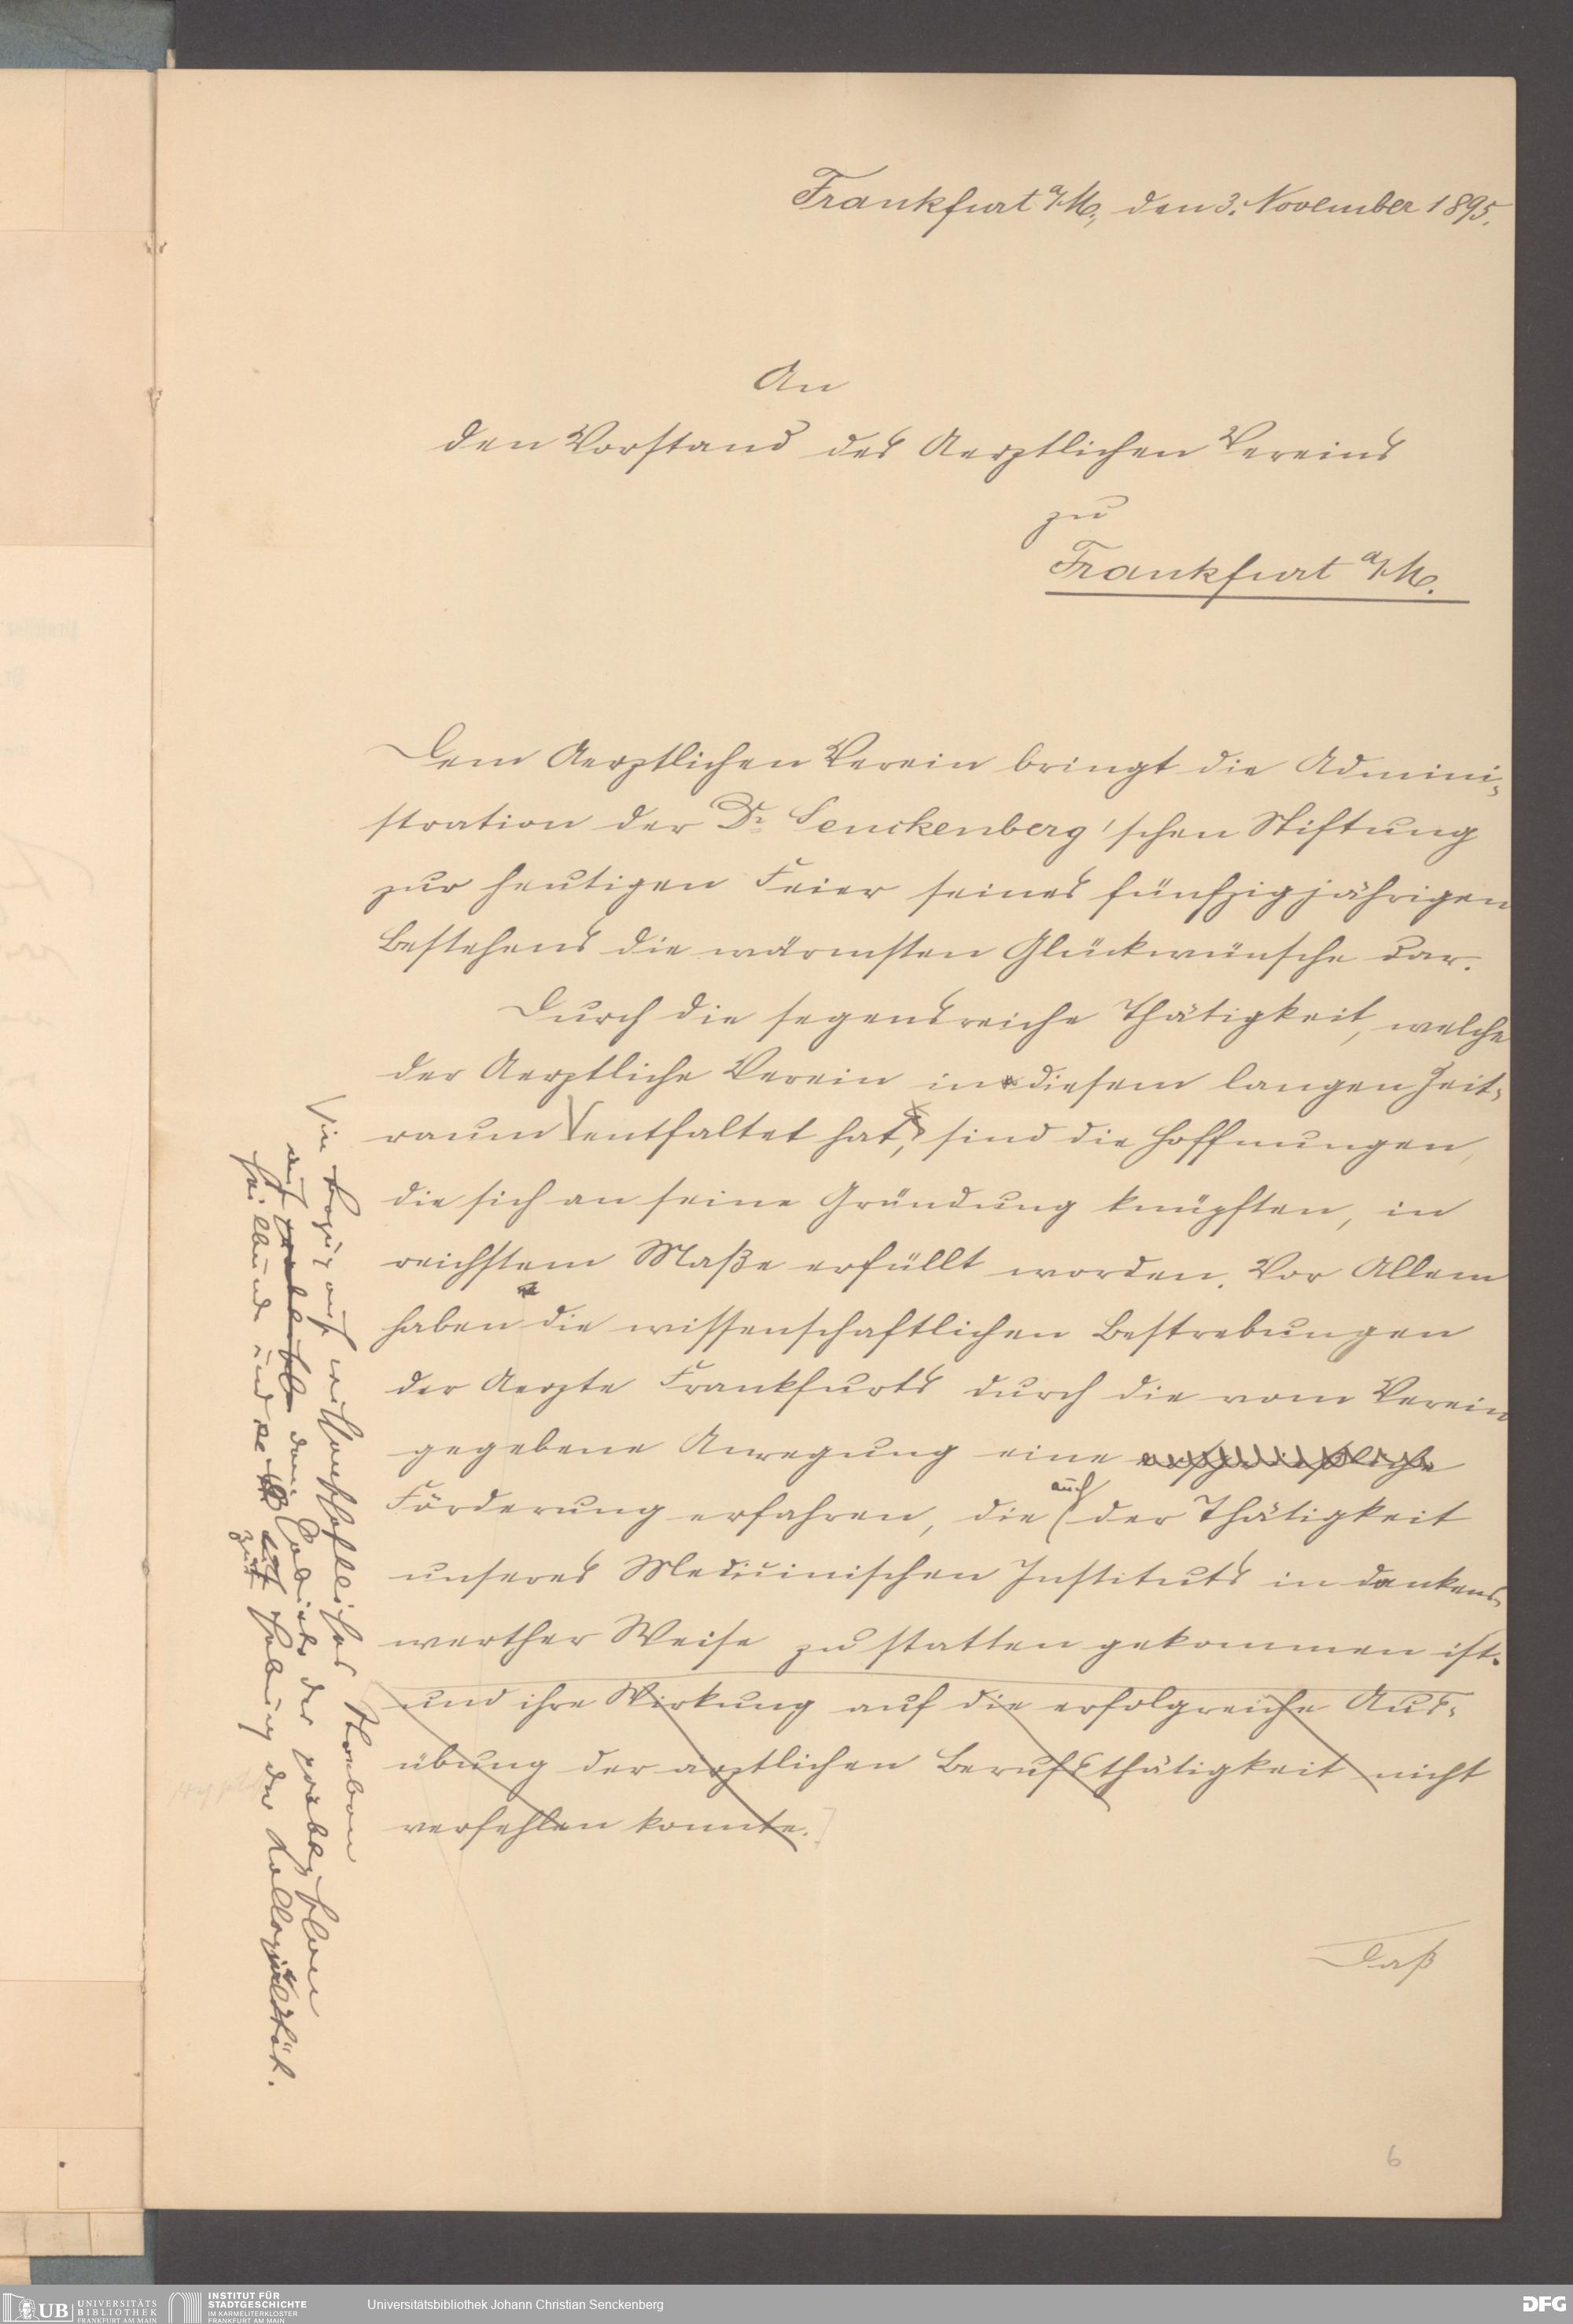 Frankfurt a/M., den 3. November 1895.
An
den Vorstand des Aerztlichen Vereins
zu
Frankfurt a/M.
Dem Aerztlichen Verein bringt die Admini-
stration der Dr. Senckenberg'schen Stiftung
zur heutigen Feier seines fünfzigjährigen
Bestehens die wärmsten Glückwünsche dar.
Durch die segensreiche Thätigkeit, welche
der Aerztliche Verein in diesem langen Zeit-
raum entfaltet hat, sind die Hoffnungen,
die sich an seine Gründung knüpften, in
reichstem Maße erfüllt worden. Vor Allem
haben die wissenschaftlichen Bestrebungen
der Aerzte Frankfurts durch die vom Verein
gegebene Anregung eine
Förderung erfahren, die auch der Thätigkeit
unseres Medicinischen Instituts in dankens-
werther Weise zu statten gekommen ist.
und ihre Wirkung auf die erfolgreiche Aus-
übung der ärztlichen Berufsthätigkeit nicht
verfehlen konnte.
Daß
in Bezug auf wissenschaftliches Streben
auf dem Gebiete der praktischen
Heilkunde und zur Hebung der Kollegialität.
6
UB UNIVERSITÄTS BIBLIOTHEK FRANKFURT AM MAIN
INSTITUT FÜR STADTGESCHICHTE IM KARMELITERKLOSTER FRANKFURT AM MAIN
Universitätsbibliothek Johann Christian Senckenberg
DFG